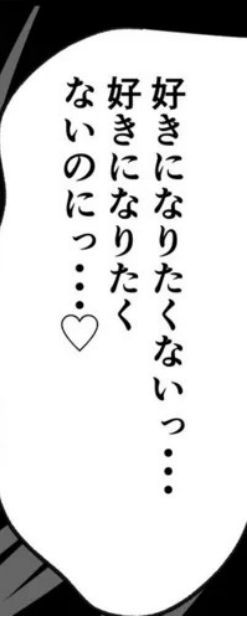 好きになりたくないっ…
好きになりたく
ないのにっ…♡